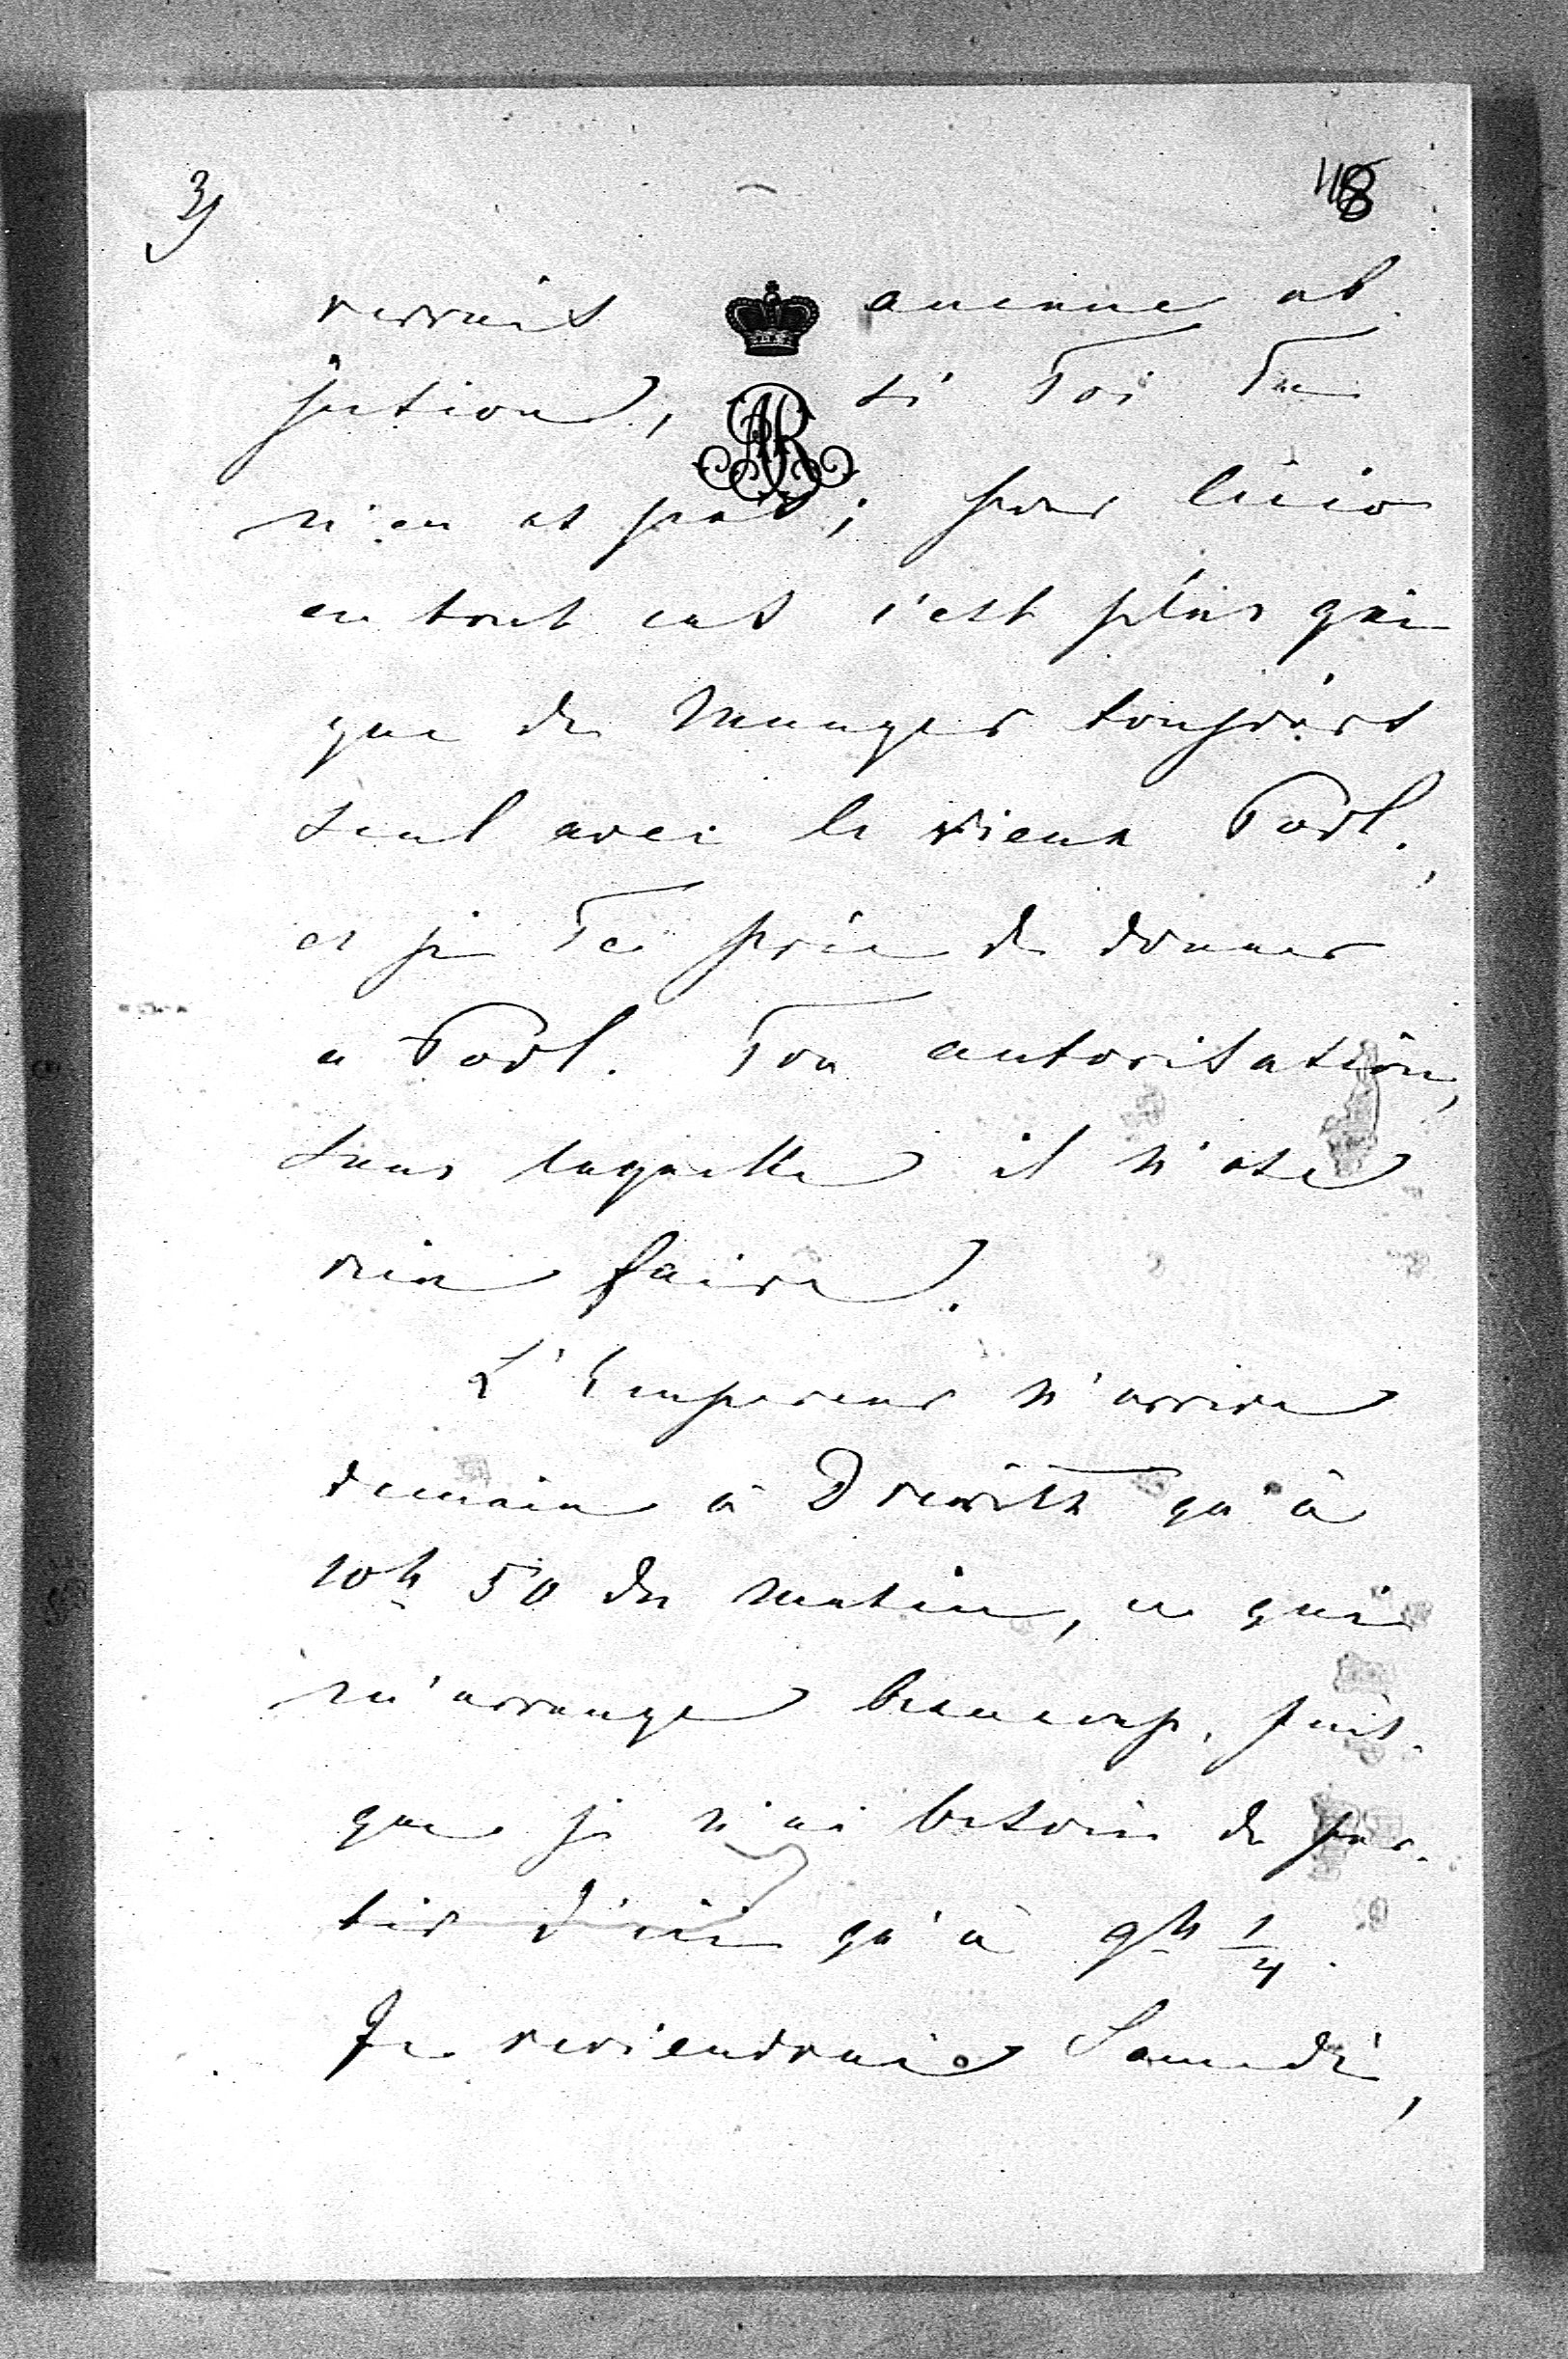 3)
48
verrais aucune ob-
jection, si Toi Tu
n'en as pas; pour
en tout cas c'est plus gai
que de manger toujours
seul avec le vieux Porl.,
et je Te prie de donner
a Porl. Ton autorisation,
sans laquelle il n'ose
rien faire.
L'Empereur n'arrive
demain à qu'à
10h 50 du matin, ce qui
m'arrange beaucoup, puis-
que je n'ai besoin de par-
tir d'ici qu'à 9h 1/4.
Je reviendrai Samedi,